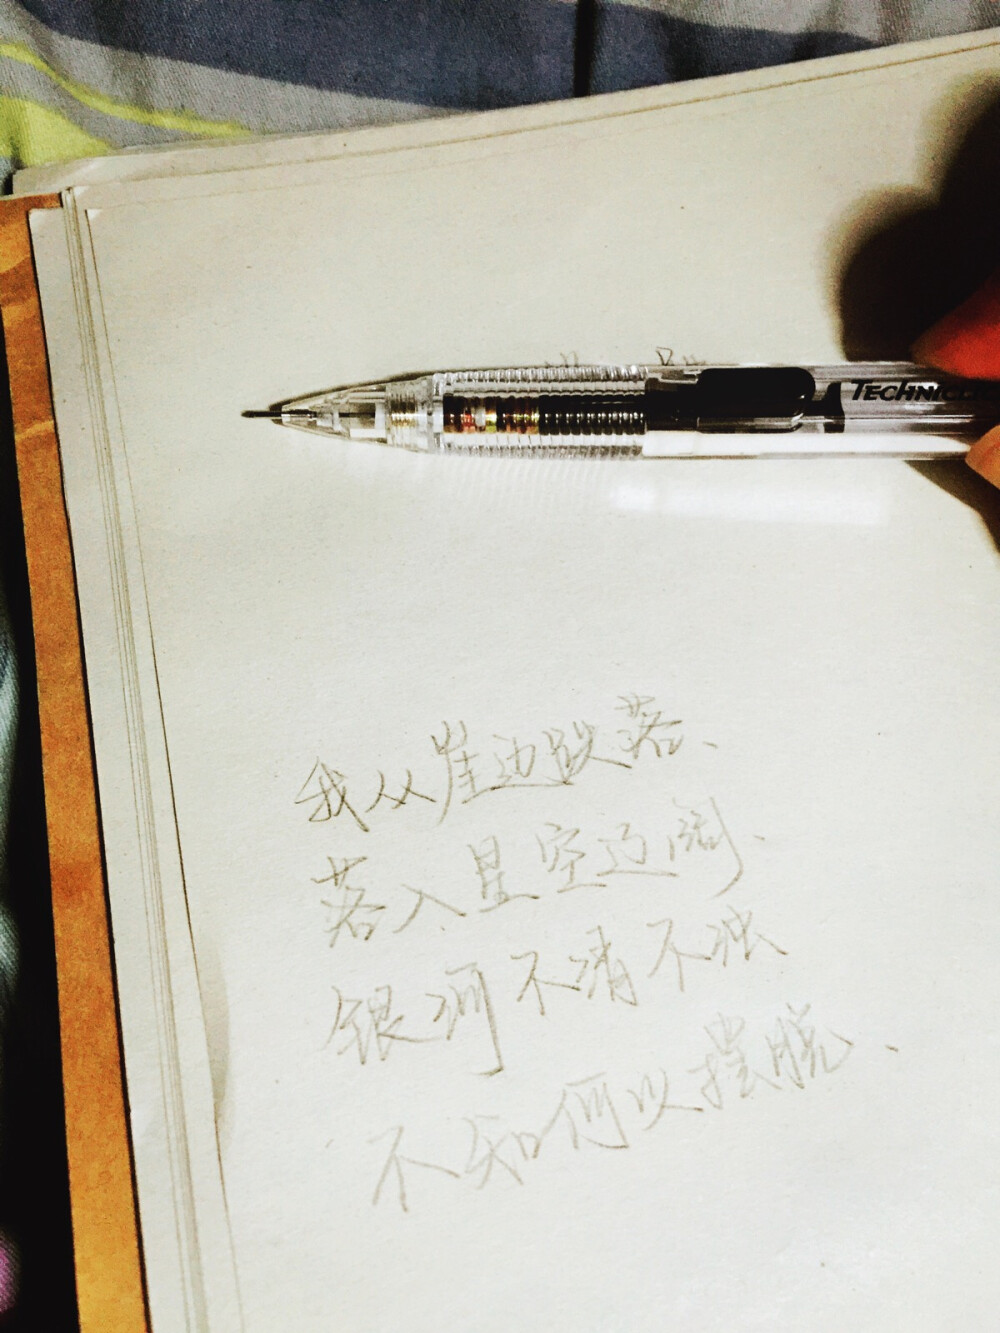 TECHNICLI
我从崖边跌落、
落入星空辽阔、
银河不清不浊
不知何以摆脱、